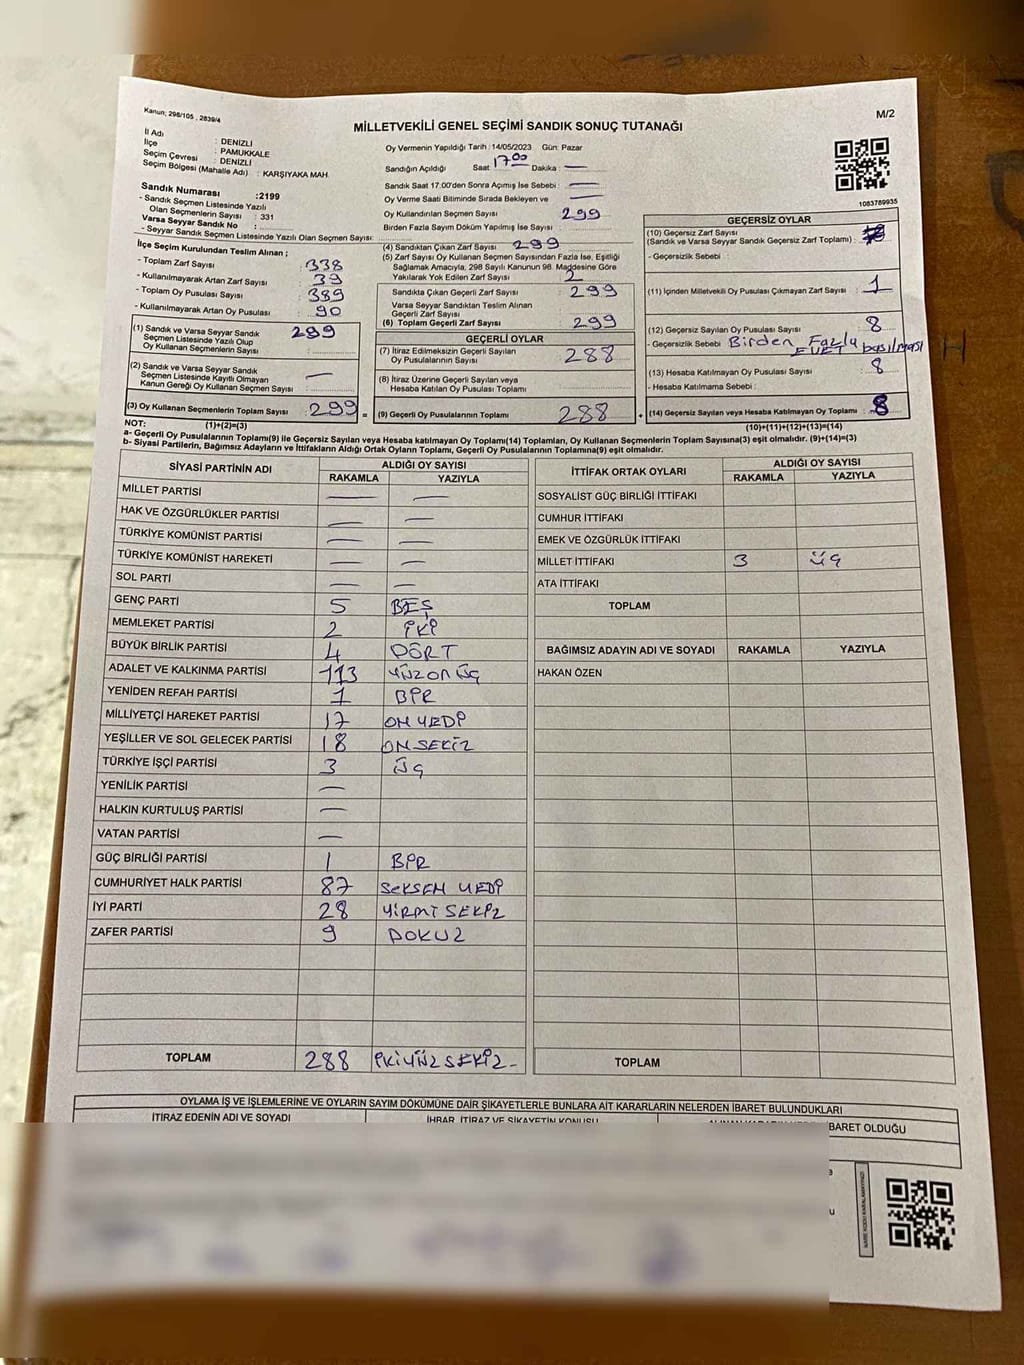 Kanun; 298/105 , 2839/4
M/2
MİLLETVEKİLİ GENEL SEÇİMİ SANDIK SONUÇ TUTANAĞI
İl Adı : DENİZLİ
İlçe : PAMUKKALE
Seçim Çevresi : DENİZLİ
Seçim Bölgesi (Mahalle Adı) : KARŞIYAKA MAH.
Sandık Numarası :2199
- Sandık Seçmen Listesinde Yazılı
Olan Seçmenlerin Sayısı : 331
Varsa Seyyar Sandık No :
- Seyyar Sandık Seçmen Listesinde Yazılı Olan Seçmen Sayısı:
Oy Vermenin Yapıldığı Tarih :14/05/2023 Gün: Pazar
Sandığın Açıldığı Saat 17:00 Dakika : —
Sandık Saat 17.00'den Sonra Açımış İse Sebebi : —
Oy Verme Saati Bitiminde Sırada Bekleyen ve —
Oy Kullandırılan Seçmen Sayısı 299
Birden Fazla Sayım Döküm Yapılmış İse Sayısı :
1083789935
İlçe Seçim Kurulundan Teslim Alınan ;
- Toplam Zarf Sayısı : 338
- Kullanılmayarak Artan Zarf Sayısı : 39
- Toplam Oy Pusulası Sayısı : 389
- Kullanılmayarak Artan Oy Pusulası : 90
(1) Sandık ve Varsa Seyyar Sandık 299
Seçmen Listesinde Yazılı Olup
Oy Kullanan Seçmenlerin Sayısı :
(2) Sandık ve Varsa Seyyar Sandık
Seçmen Listesinde Kayıtlı Olmayan —
Kanun Gereği Oy Kullanan Seçmen Sayısı :
(3) Oy Kullanan Seçmenlerin Toplam Sayısı : 299 =
(1)+(2)=(3)
(4) Sandıktan Çıkan Zarf Sayısı : 299
(5) Zarf Sayısı Oy Kullanan Seçmen Sayısından Fazla İse, Eşitliği
Sağlamak Amacıyla, 298 Sayılı Kanunun 98. Maddesine Göre
Yakılarak Yok Edilen Zarf Sayısı : 2
Sandıkta Çıkan Geçerli Zarf Sayısı : 299
Varsa Seyyar Sandıktan Teslim Alınan
Geçerli Zarf Sayısı :
(6) Toplam Geçerli Zarf Sayısı : 299
GEÇERLİ OYLAR
(7) İtiraz Edilmeksizin Geçerli Sayılan
Oy Pusulalarının Sayısı : 288
(8) İtiraz Üzerine Geçerli Sayılan veya
Hesaba Katılan Oy Pusulası Toplamı :
(9) Geçerli Oy Pusulalarının Toplamı : 288 +
GEÇERSİZ OYLAR
(10) Geçersiz Zarf Sayısı
(Sandık ve Varsa Seyyar Sandık Geçersiz Zarf Toplamı) :
- Geçersizlik Sebebi :
(11) İçinden Milletvekili Oy Pusulası Çıkmayan Zarf Sayısı : 1
(12) Geçersiz Sayılan Oy Pusulası Sayısı : 8
- Geçersizlik Sebebi : Birden Fazla
EVET basılması
(13) Hesaba Katılmayan Oy Pusulası Sayısı : 8
- Hesaba Katılmama Sebebi :
(14) Geçersiz Sayılan veya Hesaba Katılmayan Oy Toplamı : 8
(10)+(11)+(12)+(13)=(14)
NOT:
a- Geçerli Oy Pusulalarının Toplamı(9) ile Geçersiz Sayılan veya Hesaba katılmayan Oy Toplamı(14) Toplamları, Oy Kullanan Seçmenlerin Toplam Sayısına(3) eşit olmalıdır. (9)+(14)=(3)
b- Siyasi Partilerin, Bağımsız Adayların ve İttifakların Aldığı Ortak Oyların Toplamı, Geçerli Oy Pusulalarının Toplamına(9) eşit olmalıdır.
SİYASİ PARTİNİN ADI ALDIĞI OY SAYISI
RAKAMLA YAZIYLA
MİLLET PARTİSİ — —
HAK VE ÖZGÜRLÜKLER PARTİSİ — —
TÜRKİYE KOMÜNİST PARTİSİ — —
TÜRKİYE KOMÜNİST HAREKETİ — —
SOL PARTİ — —
GENÇ PARTİ 5 BEŞ
MEMLEKET PARTİSİ 2 İKİ
BÜYÜK BİRLİK PARTİSİ 4 DÖRT
ADALET VE KALKINMA PARTİSİ 113 YÜZ ON ÜÇ
YENİDEN REFAH PARTİSİ 1 BİR
MİLLİYETÇİ HAREKET PARTİSİ 17 ON YEDİ
YEŞİLLER VE SOL GELECEK PARTİSİ 18 ON SEKİZ
TÜRKİYE İŞÇİ PARTİSİ 3 ÜÇ
YENİLİK PARTİSİ —
HALKIN KURTULUŞ PARTİSİ —
VATAN PARTİSİ —
GÜÇ BİRLİĞİ PARTİSİ 1 BİR
CUMHURİYET HALK PARTİSİ 87 SEKSEN YEDİ
İYİ PARTİ 28 YİRMİ SEKİZ
ZAFER PARTİSİ 9 DOKUZ
TOPLAM 288 İKİ YÜZ SEKİZ-
İTTİFAK ORTAK OYLARI ALDIĞI OY SAYISI
RAKAMLA YAZIYLA
SOSYALİST GÜÇ BİRLİĞİ İTTİFAKI
CUMHUR İTTİFAKI
EMEK VE ÖZGÜRLÜK İTTİFAKI
MİLLET İTTİFAKI 3 ÜÇ
ATA İTTİFAKI
TOPLAM
BAĞIMSIZ ADAYIN ADI VE SOYADI RAKAMLA YAZIYLA
HAKAN ÖZEN
TOPLAM
OYLAMA İŞ VE İŞLEMLERİNE VE OYLARIN SAYIM DÖKÜMÜNE DAİR ŞİKAYETLERLE BUNLARA AİT KARARLARIN NELERDEN İBARET BULUNDUKLARI
İTİRAZ EDENİN ADI VE SOYADI İHBAR, İTİRAZ VE ŞİKAYETİN KONUSU
BARET OLDUĞU